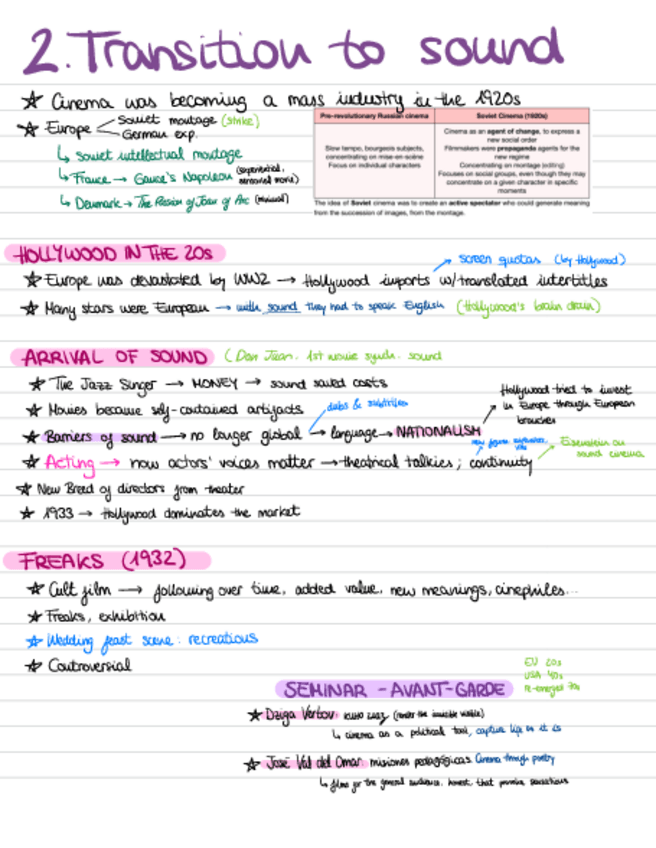 2. Transition to sound
☆ Cinema was becoming a mass industry in the 1920s
☆ Europe < Soviet montage (strike)
German exp.
↳ soviet intellectual montage
↳ France → Gance's Napoleon (experimental,
↳ Denmark → The Passion of Joan of Arc (minimal)
Pre-revolutionary Russian cinema | Soviet Cinema (1920s)
Slow tempo, bourgeois subjects, concentrating on mise-en-scène
Focus on individual characters
Cinema as an agent of change, to express a new social order
Filmmakers were propaganda agents for the new regime
Concentrating on montage (editing)
Focuses on social groups, even though they may concentrate on a given character in specific moments
The idea of Soviet cinema was to create an active spectator who could generate meaning from the succession of images, from the montage.
HOLLYWOOD IN THE 20s
→ screen quotas (by Hollywood)
☆ Europe was devastated by WW2 → Hollywood imports w/translated intertitles
☆ Many stars were European → with sound they had to speak English (Hollywood's brain drain)
ARRIVAL OF SOUND (Don Juan. 1st movie synch. sound
☆ The Jazz Singer → MONEY → sound saved costs
☆ Movies became self-contained artifacts
dubs & subtitles
Hollywood tried to invest
in Europe through European
branches
☆ Barriers of sound → no longer global → language → NATIONALISM
☆ Acting → now actors' voices matter → theatrical talkies; continuity
Eisenstein on
sound cinema
☆ New Breed of directors from theater
☆ 1933 → Hollywood dominates the market
FREAKS (1932)
☆ Cult film → following over time, added value, new meanings, cinephiles...
☆ Freaks, exhibition
☆ Wedding feast scene: recreations
☆ Controversial
SEMINAR - AVANT-GARDE
EU 20s
USA 40s
re-emerged 70s
☆ Dziga Vertov: kino (render the invisible visible)
↳ cinema as a political tool, capture life as it is
☆ José Val del Omar misiones pedagógicas. Cinema through poetry
↳ films for the general audience, honest, that provoke sensations